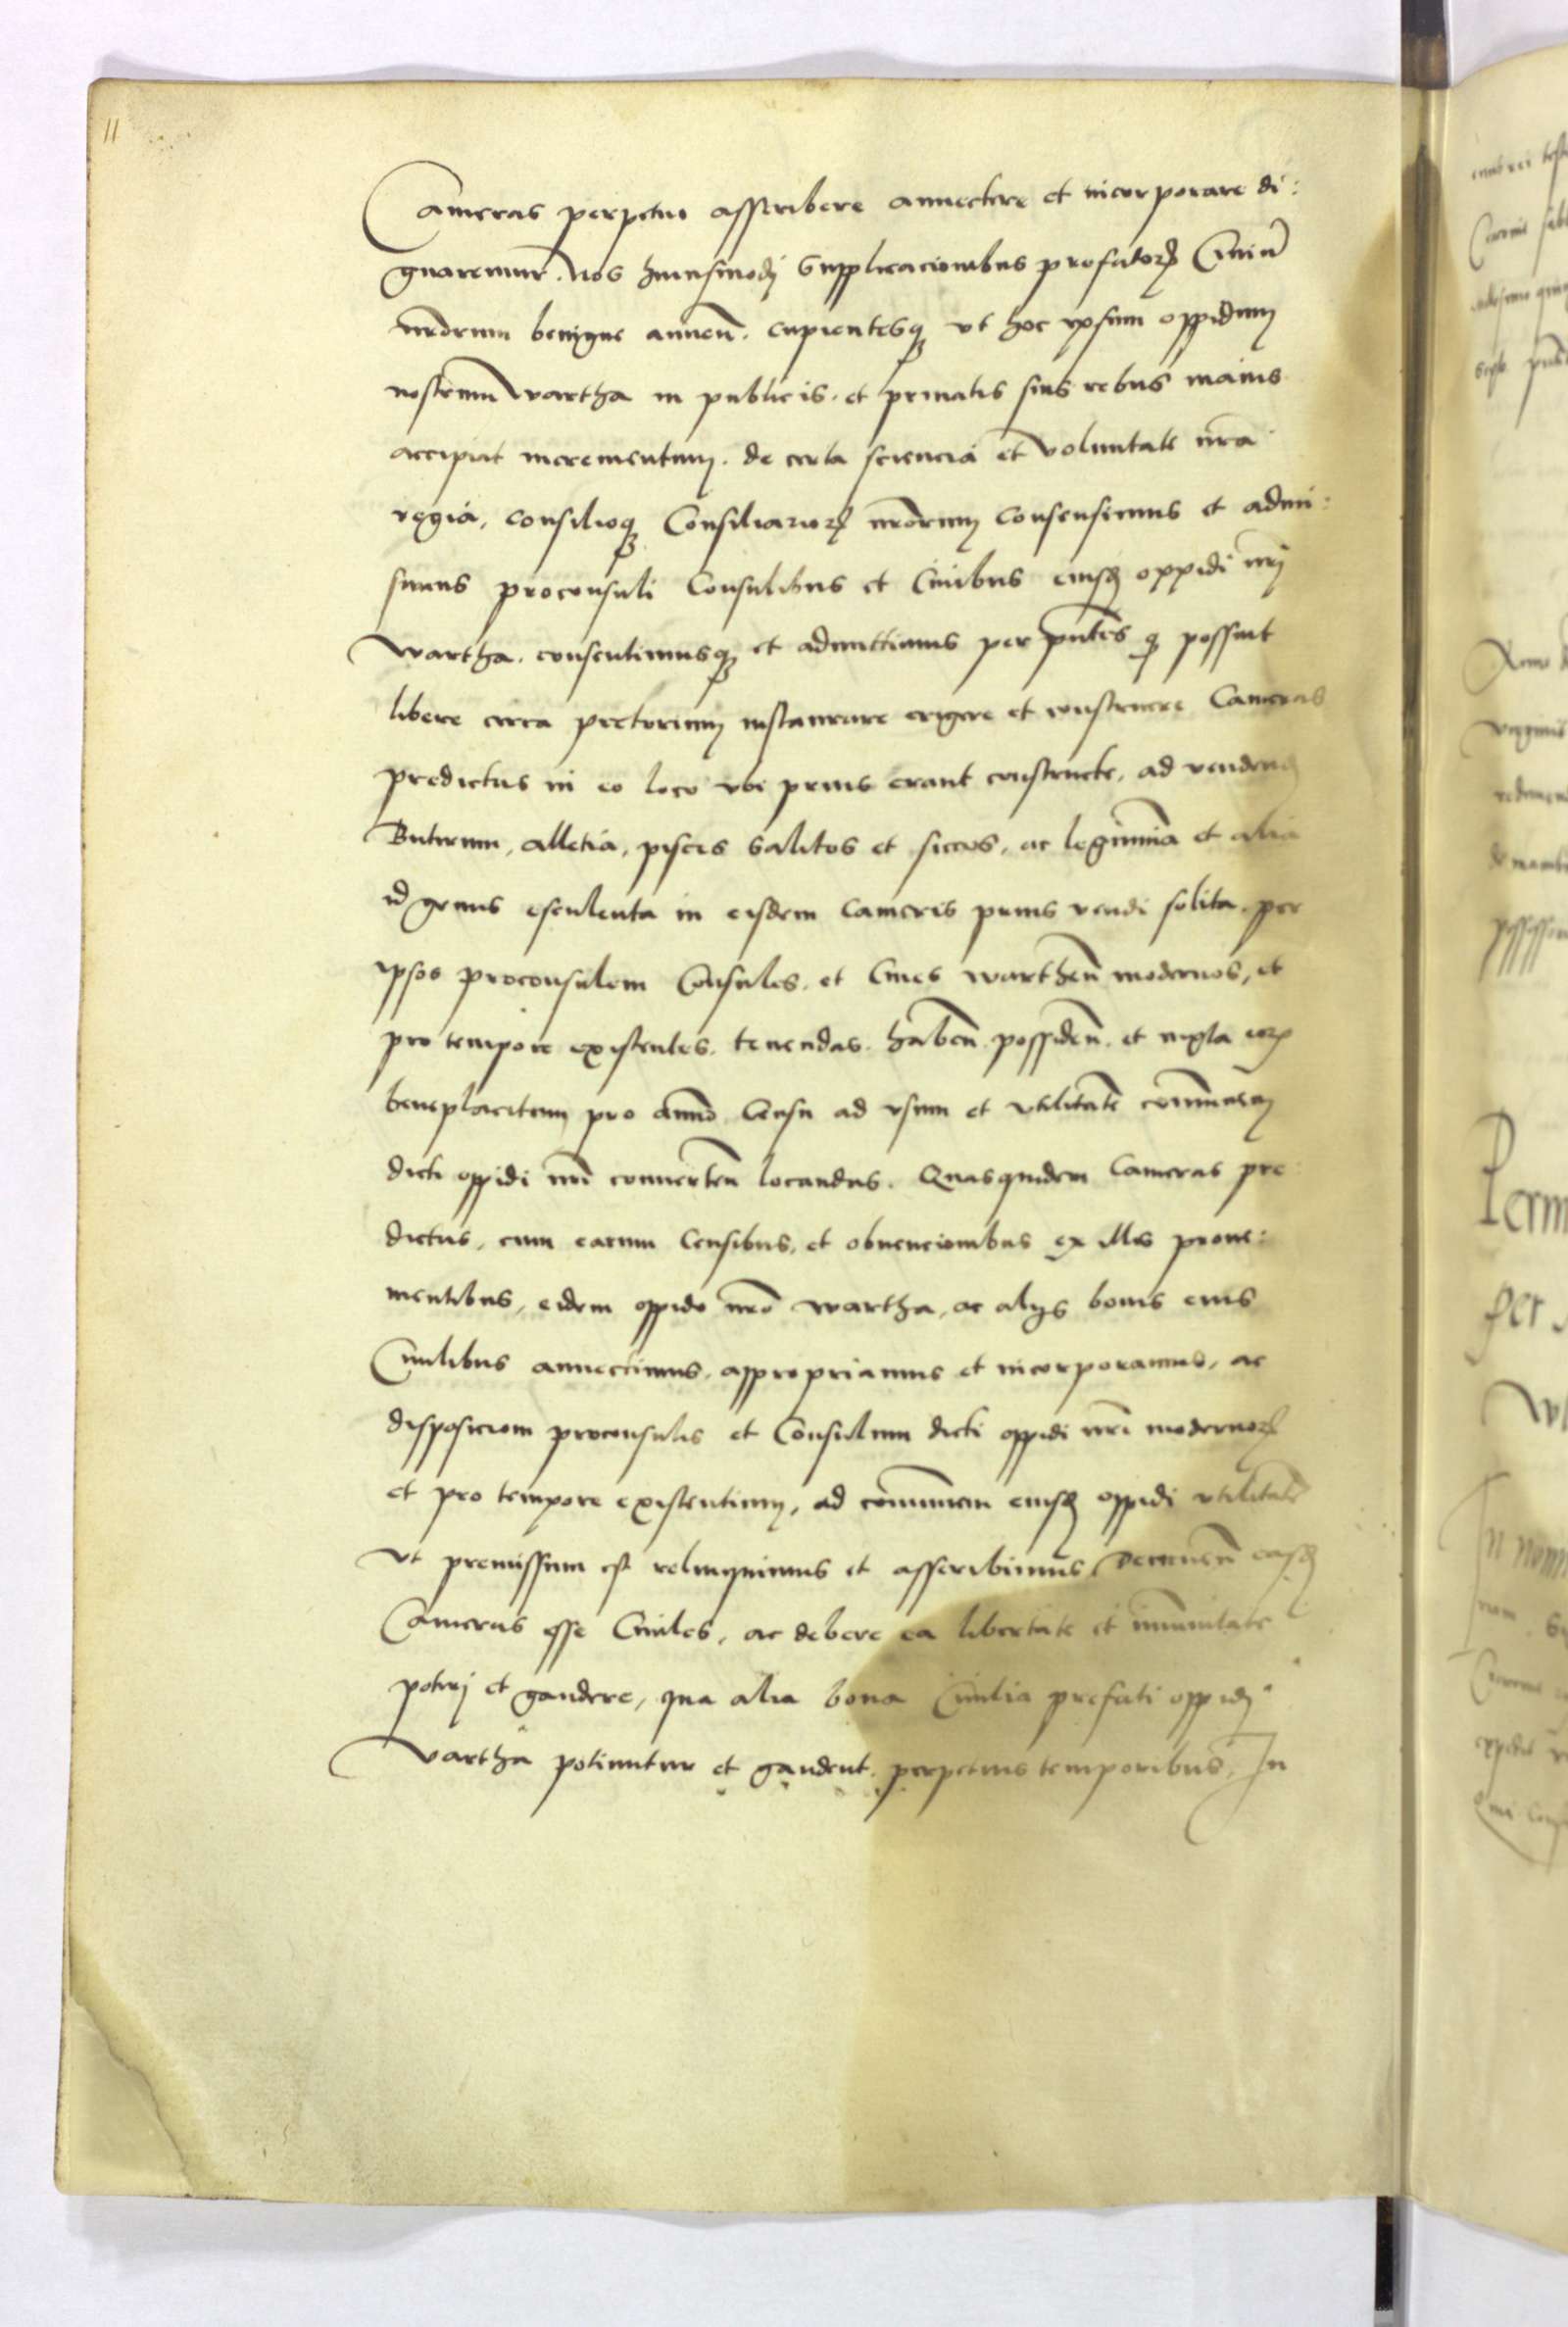 11
Cameras perpetuo asscribere annectere et incorporare di:
gnaremur. Nos huiusmodj supplicacionibus prefatorꝝ Ciuiū
nr̄orum benigne annueñ. cupientesqꝫ vt hoc ipsum oppidum
nostrum wartha in publicis. et priuatis suis rebus maius
accipiat incrementum. de certa sciencia et voluntate nr̄a
regia, consilioqꝫ Consiliariorꝝ nr̄orum consensimus et admi:
simus proconsuli Consulibus et Ciuibus eiusꝫ oppidi nr̄j
wartha. consentimusqꝫ et admittimus per pn̄tes qꝫ possint
libere circa pretorium instaurare erigere et construere Cameras
predictas in eo loco vbi prius erant constructe, ad vendenꝫ
Butirum, alletia, pisces salitos et siccos, ac legumina et alia
id genus esculenta in eisdem Cameris prius vendi solita. per
ipsos proconsulem Consules. et Ciues wartheñ modernos, et
pro tempore existentes. tenendas. habeñ. possideñ. et iuxta eorꝝ
beneplacitum pro annuo Censu ad vsum et vtilitatē cōmunem
dicti oppidi nr̄i conuerteñ locandas. Quasquidem Cameras pre:
dictas, cum earum Censibus, et obuencionibus ex illis proue:
nientibus, eidem oppido nr̄o wartha, ac alijs bonis eius
Ciuilibus annectimus, appropriamus et incorporamus, ac
disposicioni proconsulis et Consulum dicti oppidi nr̄i modernorꝝ
et pro tempore existentium, ad cōmunem eiusꝫ oppidi vtilitatē
vt premissum est relinquimus et asscribimus. Decerneñ easꝫ
Cameras esse Ciuiles, ac debere ea libertate et im̄unitate
potirj et gaudere, qua alia bona Ciuilia prefati oppidj
wartha potiuntur et gaudent. perpetuis temporibus. In